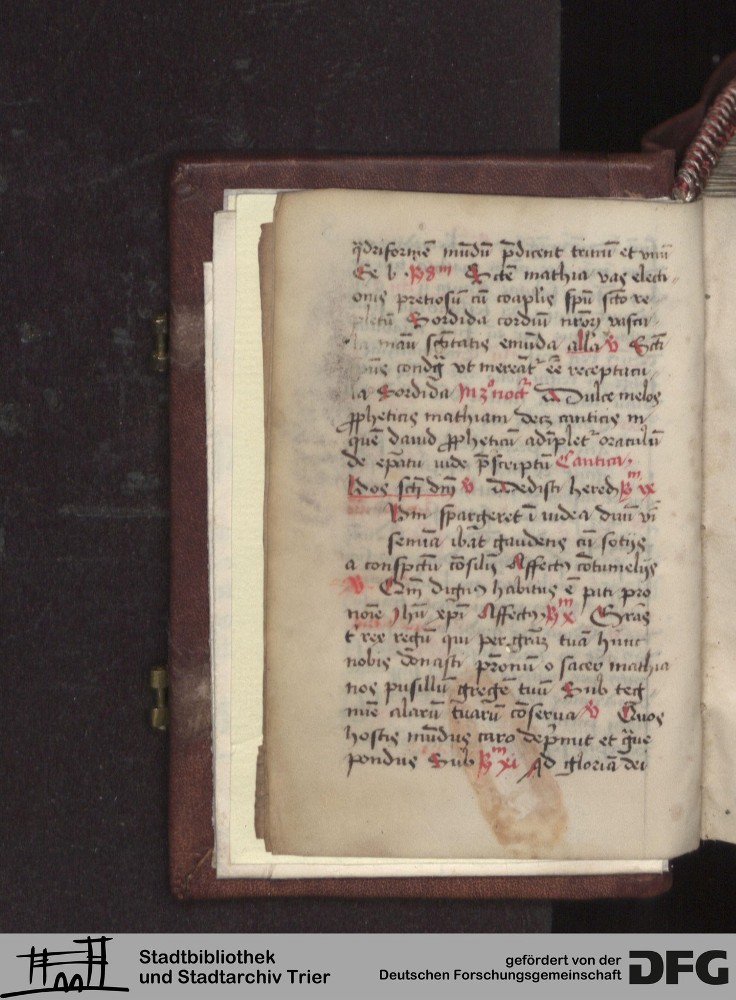 q̈driformē mūdū p̄dicent trinū et vnū
Ee b R 8m Scē mathia vas electi
onis pretiosū cū coaplis spū scō re
pletū Sordida cordiū nr̄oꝝ vascu
la manu sc̄tatis emūda alla v Scī
spūs condig̅ vt mereāt ēē receptacu
la Sordida In 3o noct a Dulce melos
ꝓpheticis mathiam decꝫ canticis in
quē dauid ꝓpheticū adīplet oraculū
de ep̄atu iude p̄scriptū Cantica
Vos scī dnī v Dedisti hered R m ix
Dm spargeret ī iudea diuī vī
semīa ibāt gaudens cū sotijs
a conspctū cōsilij Affectꝰ cōtumelijs
v Qm̄ dignꝰ habitus ē pati pro
noīe Jhū xpī Affectꝰ R m x Gr̄as
t rex regū qui per gr̄aꝫ tuā hunc
nobis donasti pr̄onū o sacer mathia
nos pusillū gregē tuū Sub teg
mīe alarū tuarū cōserua v Quos
hostis mūdus caro dep̄mit et g̅ue
pondus Sub R m xi Ad gloriā dei
Stadtbibliothek
und Stadtarchiv Trier
gefördert von der
Deutschen Forschungsgemeinschaft
DFG